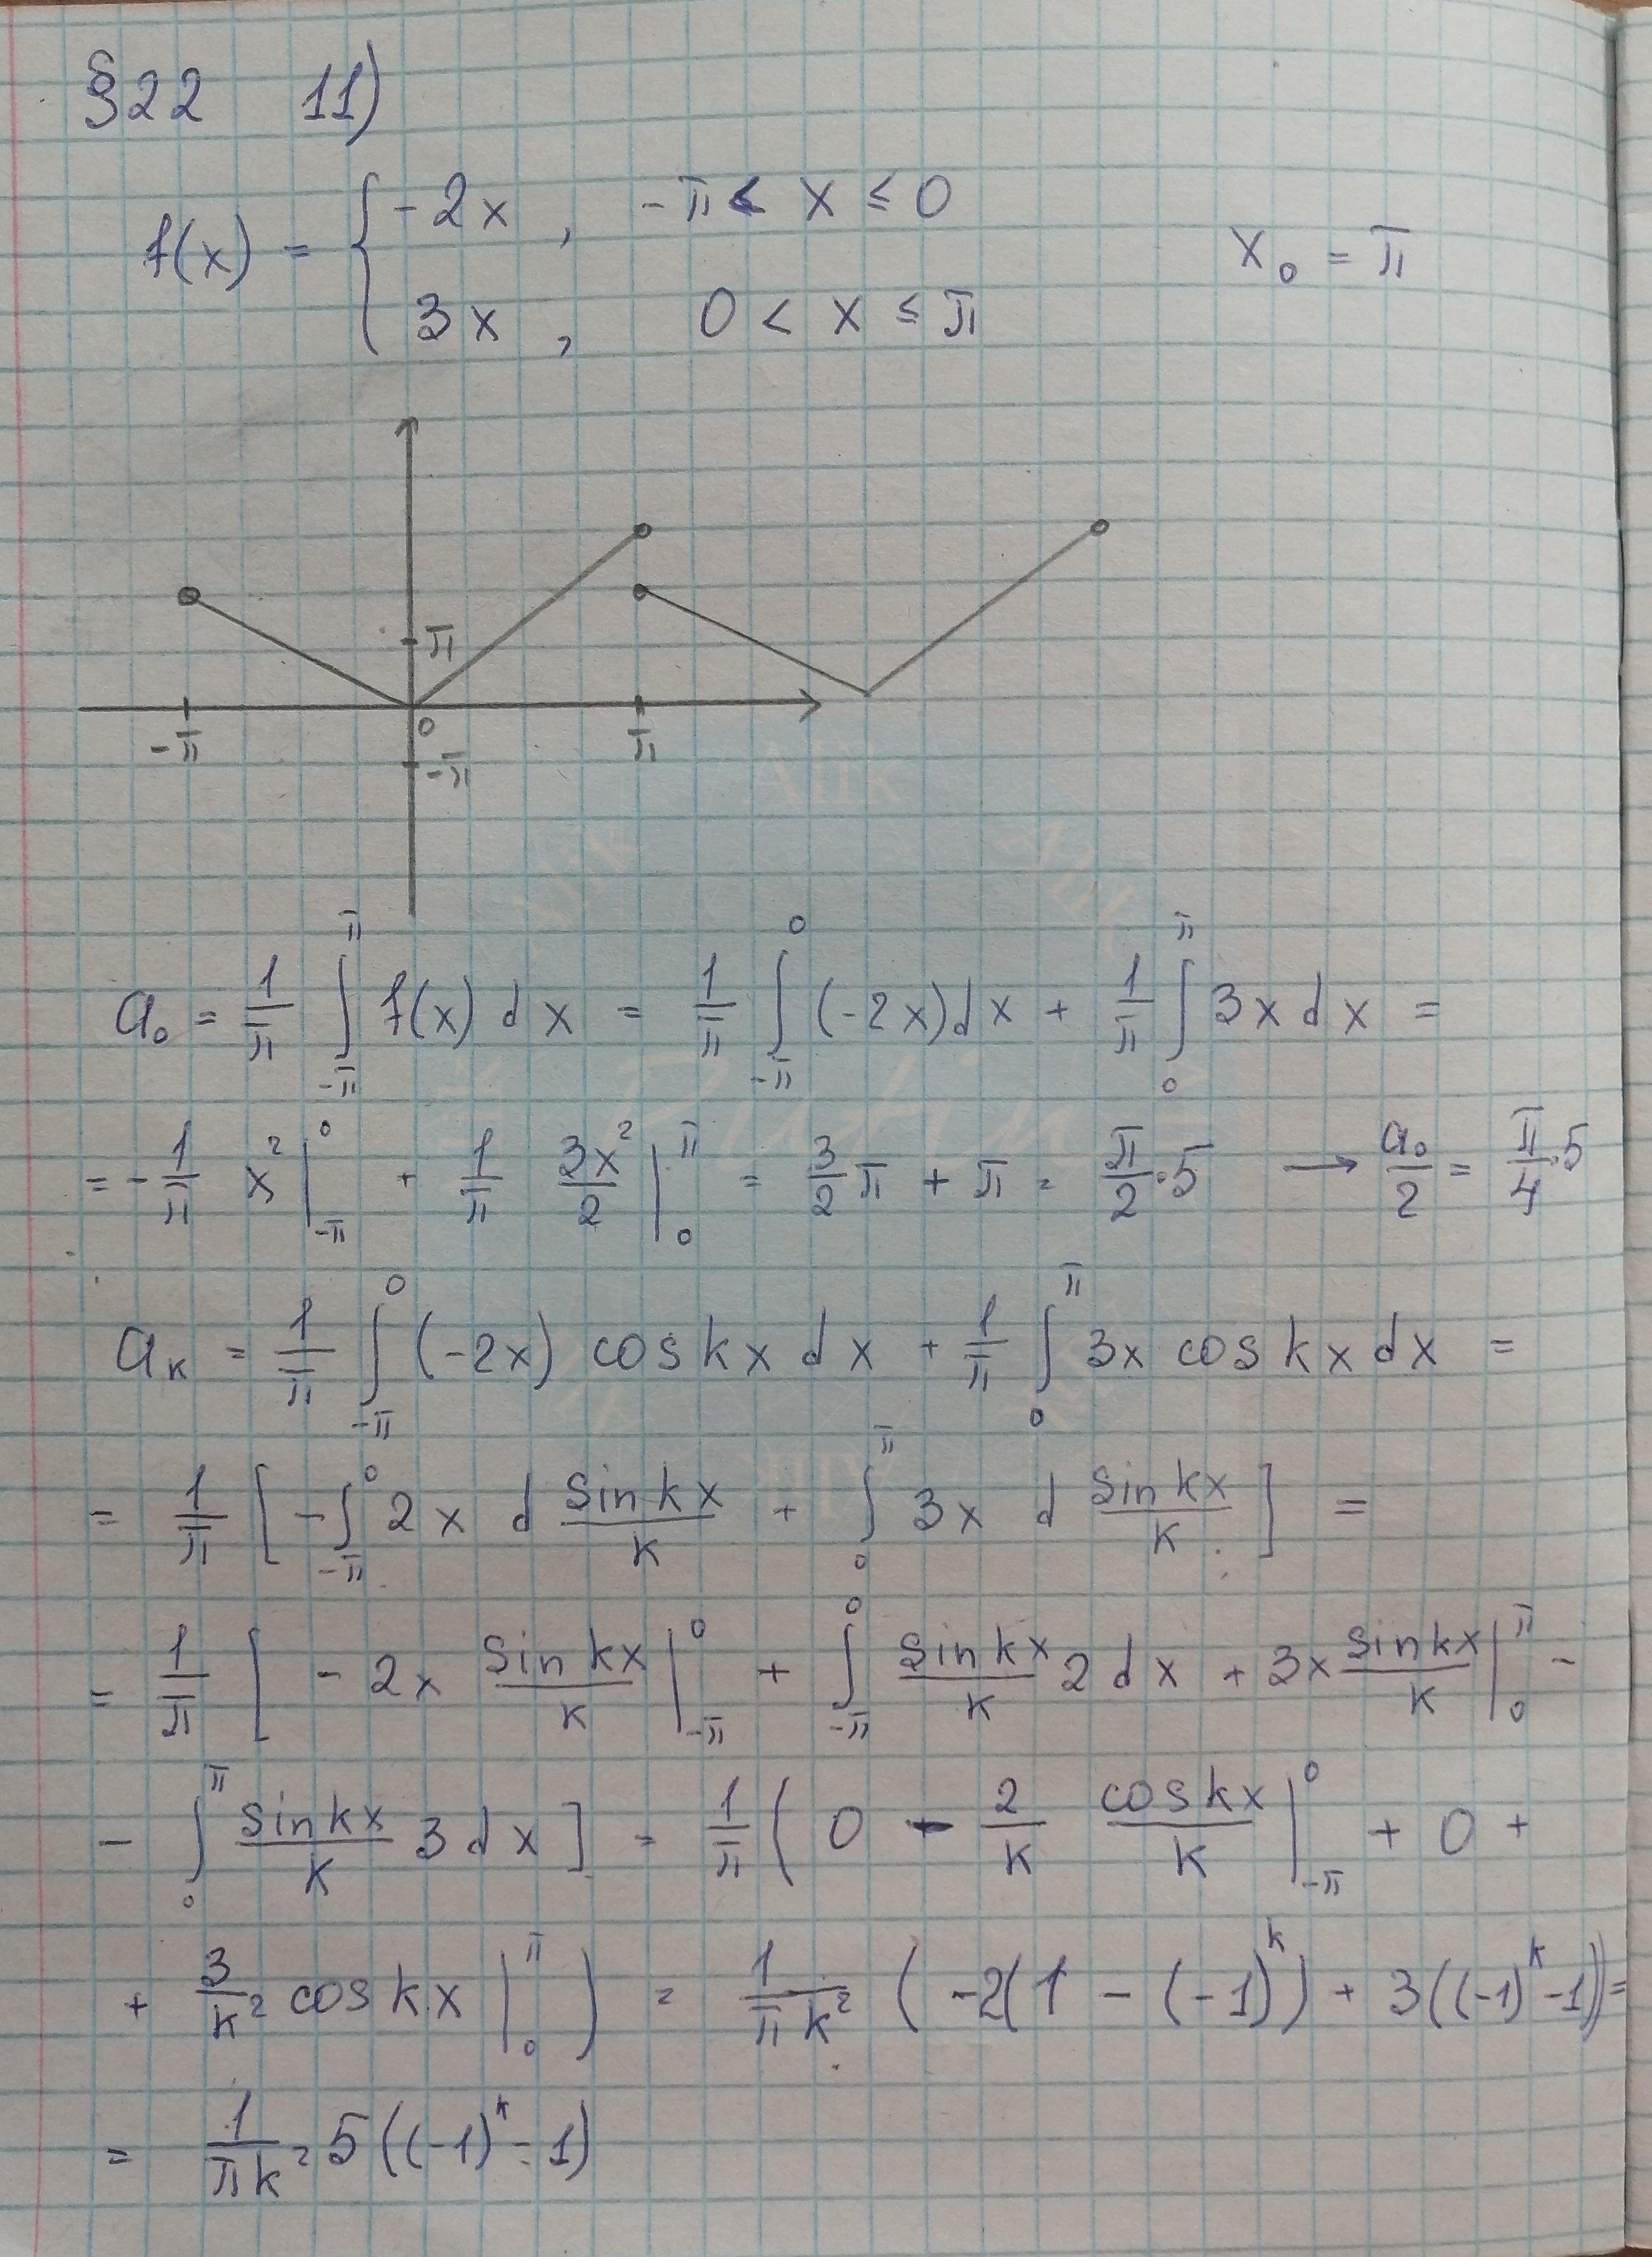 §22 11)
f(x) = { -2x , -π < x ≤ 0
3x , 0 < x ≤ π
x₀ = π
π
-π 0 π
-π
a₀ = 1/π ∫_{-π}^{π} f(x) dx = 1/π ∫_{-π}^{0} (-2x)dx + 1/π ∫_{0}^{π} 3x dx =
= -1/π x² |_{-π}^{0} + 1/π 3x²/2 |_{0}^{π} = 3/2 π + π = π/2·5 → a₀/2 = π/4·5
aₖ = 1/π ∫_{-π}^{0} (-2x) cos kx dx + 1/π ∫_{0}^{π} 3x cos kx dx =
= 1/π [ -∫_{-π}^{0} 2x d sin kx/k + ∫_{0}^{π} 3x d sin kx/k ] =
= 1/π [ -2x sin kx/k |_{-π}^{0} + ∫_{-π}^{0} sin kx/k 2 dx + 3x sin kx/k |_{0}^{π} -
- ∫_{0}^{π} sin kx/k 3 dx ] = 1/π ( 0 - 2/k cos kx/k |_{-π}^{0} + 0 +
+ 3/k² cos kx |_{0}^{π} ) = 1/πk² ( -2(1 - (-1)^k) + 3((-1)^k - 1)) =
= 1/πk² 5((-1)^k - 1)
Alik
Alik
Alik